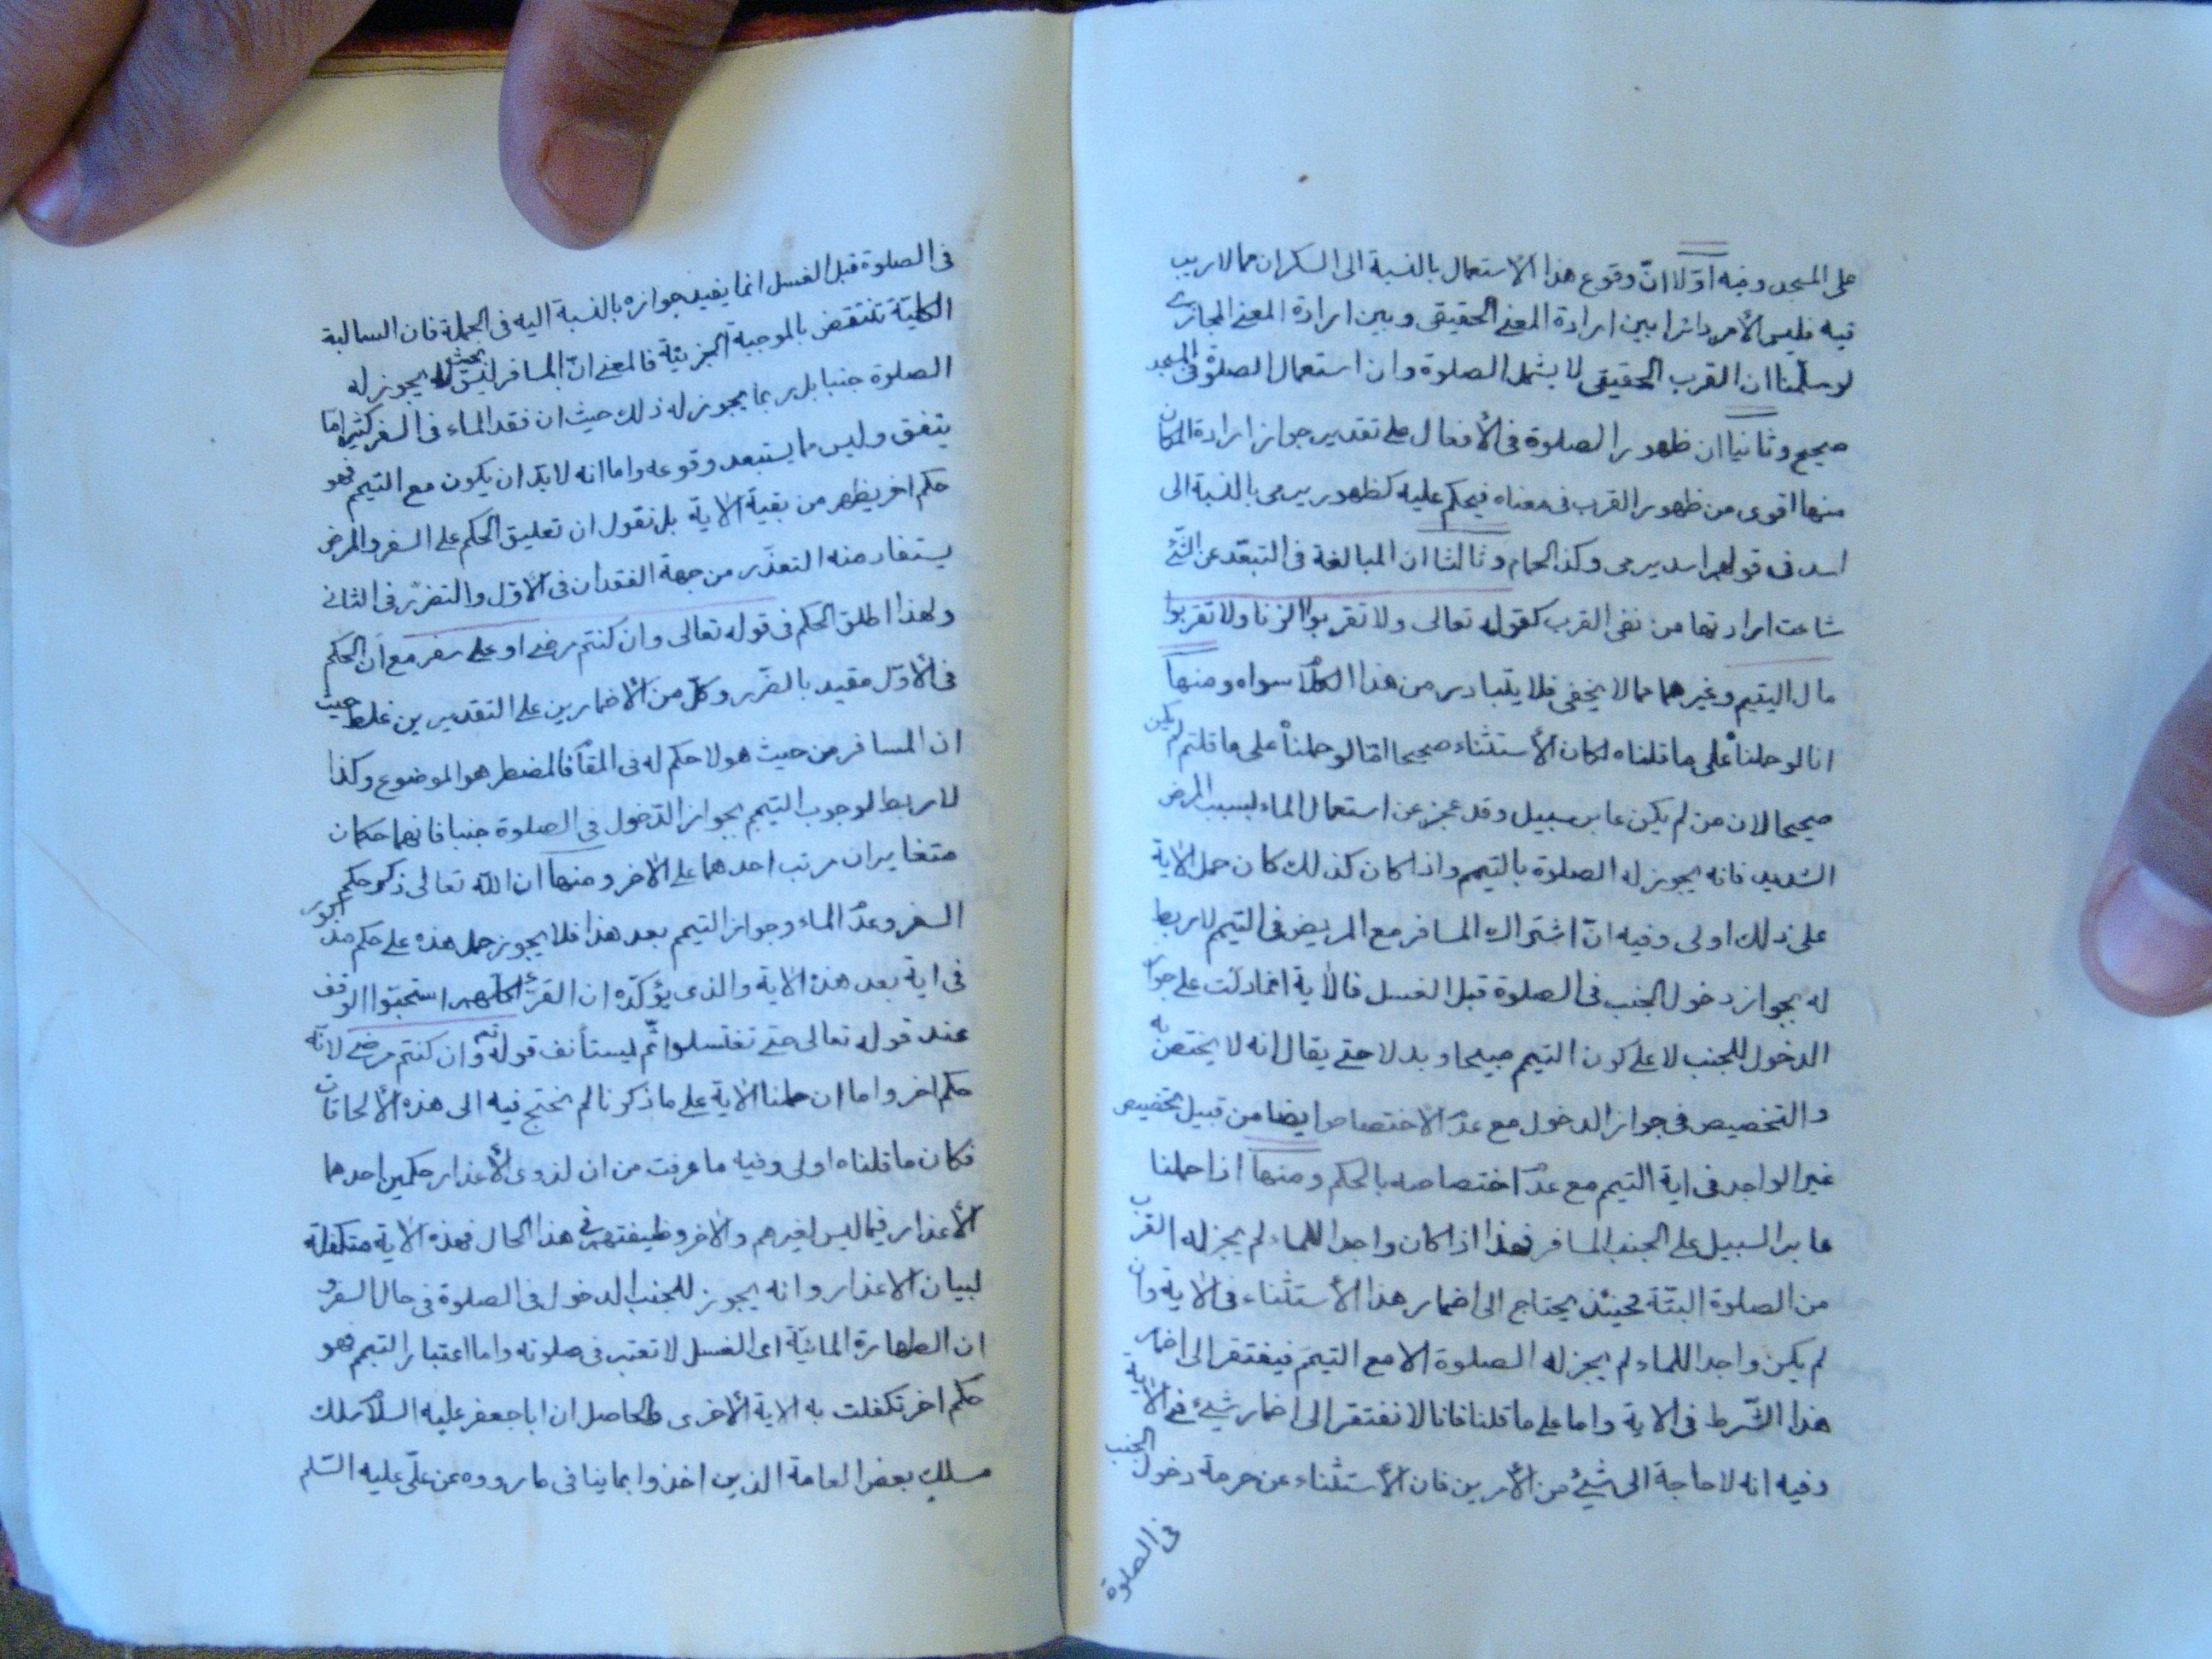 على المسجد وفيه اوّلا انّ وقوع هذا الأستعمال بالنسبة الى السكران مما لا ريب
فيه فليس الأمر دائرا بين ارادة المعنى الحقيقى وبين ارادة المعنى المجازى
لو سلّمنا ان القرب الحقيقى لا يشمل الصلوة وان استعمال الصلوة فى المسجد
صحيح وثانيا ان ظهور الصلوة فى الأفعال على تقدير جواز ارادة المكان
منها اقوى من ظهور القرب فى معناه فيحكم عليه كظهور يرمى بالنسبة الى
اسد فى قولهم اسد يرمى وكذا الحمام وثالثا ان المبالغة فى التبعّد عن الشئ
شاعت ارادتها من نفى القرب كقوله تعالى ولا تقربوا الزنا ولا تقربوا
مال اليتيم وغيرهما مما لا يخفى فلا يتبادر من هذا الكلام سواه ومنها
انا لو حملنا على ما قلناه لكان الأستثناء صحيحا امّا لو حملنا على ما قلتم لم يكن
صحيحا لان من لم يكن عابر سبيل وقد عجز عن استعمال الماء لسبب المرض
الشديد فانه يجوز له الصلوة بالتيمم واذا كان كذلك كان حمل الاية
على ذلك اولى وفيه انّ اشتراك المسافر مع المريض فى التيمم لا ربط
له بجواز دخول الجنب فى الصلوة قبل الغسل فالاية انما دلّت على جواز
الدخول للجنب لا على كون التيمم مبيحا وبدلا حتى يقال انه لا يختص به
والتخصيص فى جواز الدخول مع عدم الأختصاص ايضا من قبيل تخصيص
غير الواجد فى اية التيمم مع عدم اختصاصه بالحكم ومنها اذا حملنا
عابر السبيل على الجنب المسافر فهذا اذا كان واجدا للماء لم يجز له القرب
من الصلوة البتّة فحينئذ يحتاج الى اضمار هذا الأستثناء فى الاية وان
لم يكن واجدا للماء لم يجز له الصلوة الا مع التيمم فيفتقر الى اضمار
هذا الشّرط فى الاية واما على ما قلنا فانا لا نفتقر الى اضمار شيئ فى الاية
وفيه انه لا حاجة الى شيئ من الأمرين فان الأستثناء عن حرمة دخول الجنب
فى الصلوة
فى الصلوة قبل الغسل انما يفيد جوازه بالنسبة اليه فى الجملة فان السالبة
الكلية تنتقض بالموجبة الجزئيّة فالمعنى انّ المسافر ليس بحيث لا يجوز له
الصلوة جنبا بل ربما يجوز له ذلك حيث ان فقد الماء فى السفر كثيرا ما
يتفق وليس مما يستبعد وقوعه واما انه لا بدّ ان يكون مع التيمم فهو
حكم اخر يظهر من بقية الاية بل نقول ان تعليق الحكم على السفر والمرض
يستفاد منه التعذّر من جهة الفقدان فى الأوّل والتضرّر فى الثانى
ولهذا اطلق الحكم فى قوله تعالى وان كنتم مرضى او على سفر مع ان الحكم
فى الأوّل مقيد بالضّرر وكلّ من الأضمارين على التقديرين غلط حيث
ان المسافر من حيث هو لا حكم له فى المقام فالمضطر هو الموضوع وكذا
لا ربط لوجوب التيمم بجواز الدّخول فى الصلوة جنبا فانهما حكمان
متغايران مرتب احدهما على الاخر ومنها ان اللّه تعالى ذكر حكم
السفر وعدم الماء وجواز التيمم بعد هذا فلا يجوز حمل هذه على حكم مذكور
فى اية بعد هذه الاية والذى يؤكّده ان القرّاء كلهم استحبّوا الوقف
عند قوله تعالى حتى تغتسلوا ثم ليستأنف قوله تعم وان كنتم مرضى لانّه
حكم اخر واما ان حملنا الاية على ما ذكرنا لم نحتج فيه الى هذه الألحاقات
فكان ما قلناه اولى وفيه ما عرفت من ان لذوى الأعذار حكمين احدهما
الأعذار فيما ليس لغيرهم والاخر وظيفتهم فى هذا الحال فهذه الاية متكفلة
لبيان الاعذار وانه يجوز للجنب الدخول فى الصلوة فى حال السفر و
ان الطهارة المائيّة اى الغسل لا تعتبر فى صلوته واما اعتبار التيمم فهو
حكم اخر تكفلت به الاية الأخرى والحاصل ان ابا جعفر عليه السلام سلك
مسلك بعض العامة الذين اخذوا بما ينافى ما رووه عن علّى عليه السّلم